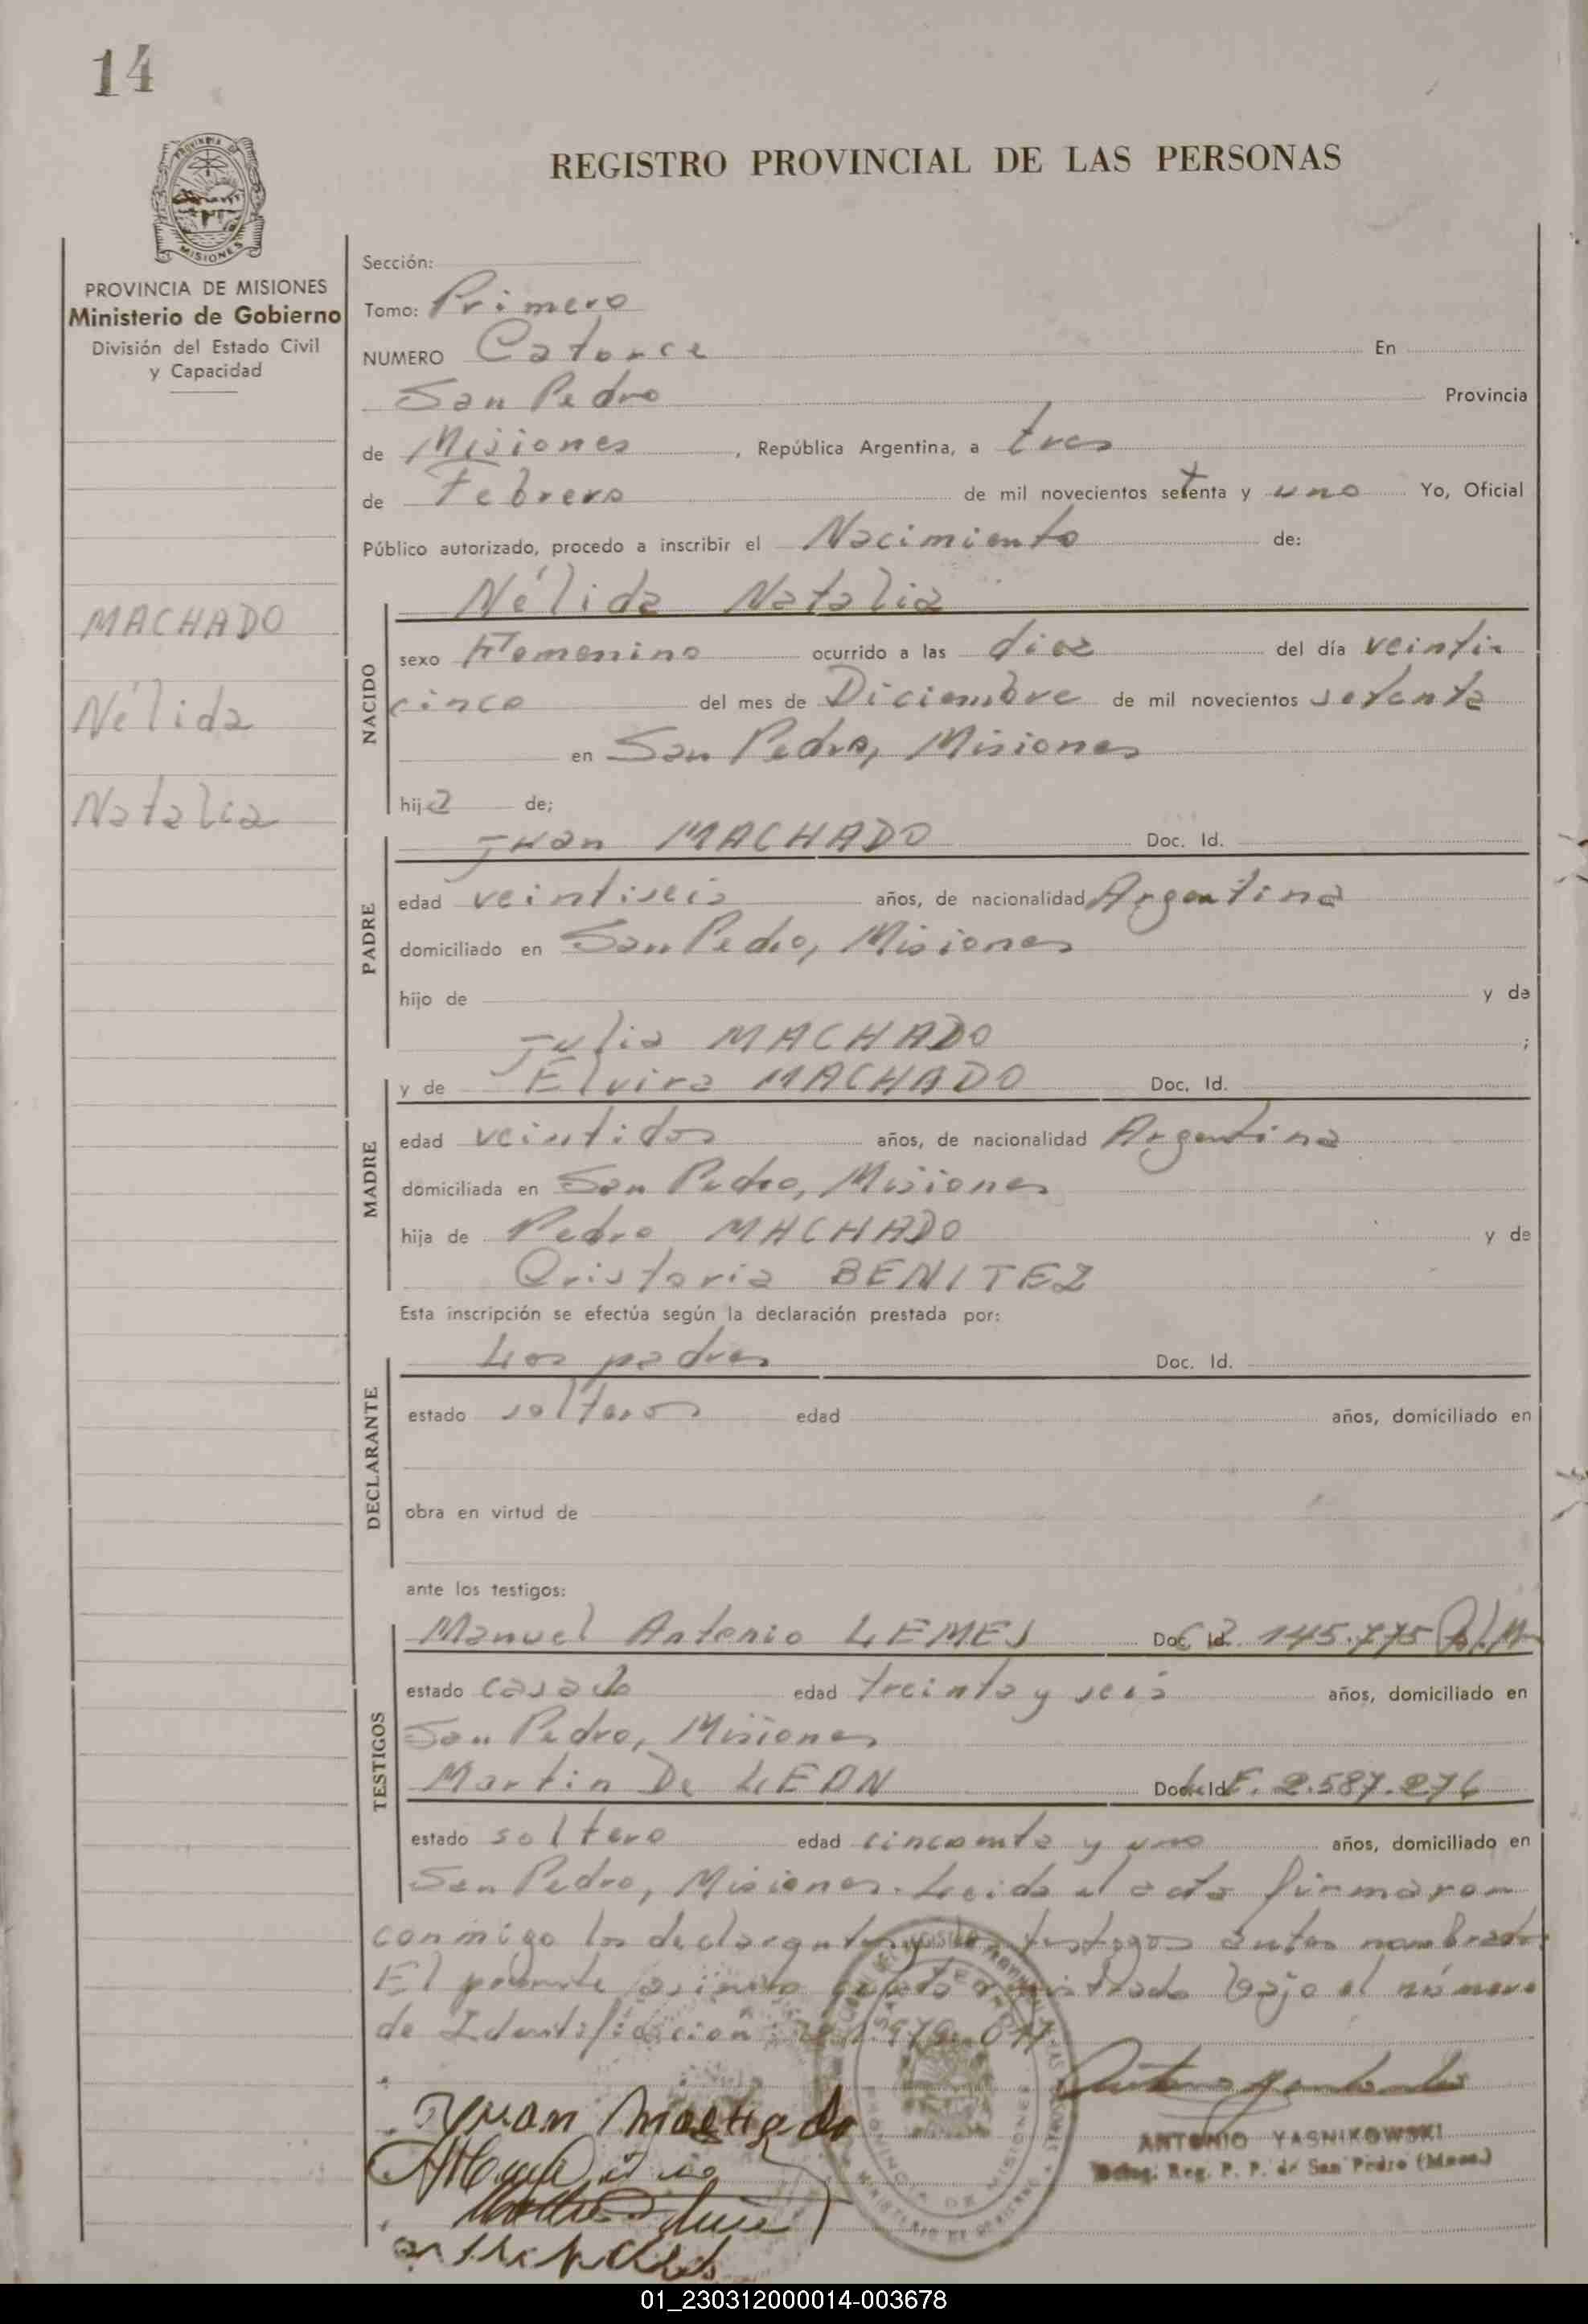 14
PROVINCIA DE
MISIONES
REGISTRO PROVINCIAL DE LAS PERSONAS
PROVINCIA DE MISIONES
Ministerio de Gobierno
División del Estado Civil
y Capacidad
MACHADO
Nélida
Natalia
Sección:
Tomo: Primero
NUMERO Catorce En
San Pedro Provincia
de Misiones, República Argentina, a tres
de Febrero de mil novecientos setenta y uno Yo, Oficial
Público autorizado, procedo a inscribir el Nacimiento de:
NACIDO
Nélida Natalia
sexo Femenino ocurrido a las diez del día veinti
cinco del mes de Diciembre de mil novecientos setenta
en San Pedro, Misiones
hija de;
PADRE
Juan MACHADO Doc. Id.
edad veintiseis años, de nacionalidad Argentina
domiciliado en San Pedro, Misiones
hijo de y de
Julia MACHADO ;
MADRE
y de Elvira MACHADO Doc. Id.
edad veintidos años, de nacionalidad Argentina
domiciliada en San Pedro, Misiones
hija de Pedro MACHADO y de
Qristoria BENITEZ
Esta inscripción se efectúa según la declaración prestada por:
DECLARANTE
Los padres Doc. Id.
estado solteros edad años, domiciliado en
obra en virtud de
ante los testigos:
TESTIGOS
Manuel Antonio LEMES Doc. Id. 145.775
estado casado edad treinta y seis años, domiciliado en
San Pedro, Misiones
Martin De LEON Doc. Id. 2.587.276
estado soltero edad cincuenta y uno años, domiciliado en
San Pedro, Misiones. Leida el acta firmaron
conmigo los declarantes y los testigos antes nombrados
El presente asiento queda registrado bajo el número
de Identificación
Juan Machado
ANTONIO YASNIKOWSKI
Deleg. Reg. P. P. de San Pedro (Mnes.)
PROVINCIA DE MISIONES
MINISTERIO DE GOBIERNO
01_230312000014-003678